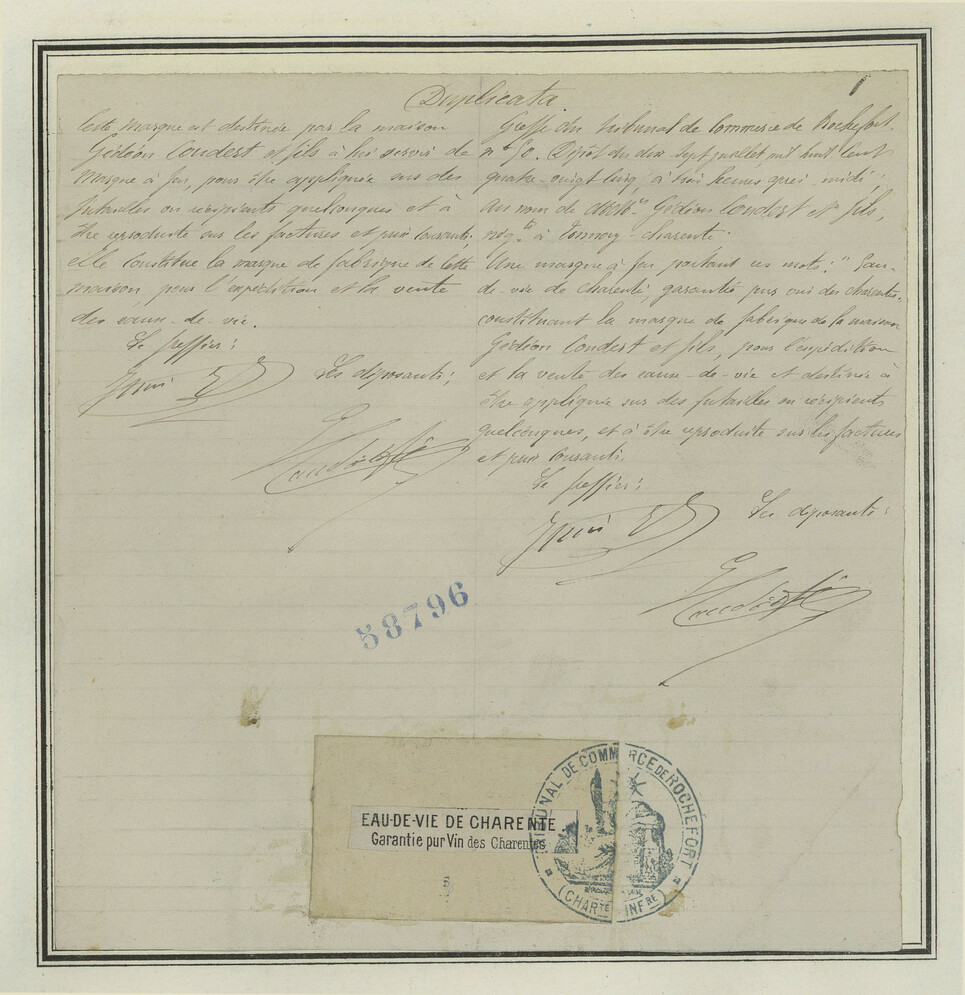 Duplicata
1
Cette marque est destinée par la maison
Gédéon Coudert et fils à lui servir de
marque à feu, pour être appliquée sur des
futailles ou récipients quelconques et à
être reproduite sur les factures et prix courants,
elle constitue la marque de fabrique de cette
maison, pour l'expédition et la vente
des eaux-de-vie.
Le greffier:
Les déposants:
Greffe du Tribunal de Commerce de Rochefort.
Dépôt du dix sept juillet mil huit cent
quatre-vingt cinq, à trois heures après-midi,
Au nom de Gédéon Coudert et fils,
négts à Tonnay-Charente.
Une marque à feu portant ces mots: "Eau-
de-vie de Charente garantie pur vin des Charentes,
constituant la marque de fabrique de la maison
Gédéon Coudert et fils, pour l'expédition
et la vente des eaux-de-vie et destinée à
être appliquée sur des futailles ou récipients
quelconques, et à être reproduite sur les factures
et prix courants.
Le greffier:
Les déposants:
58796
EAU-DE-VIE DE CHARENTE
Garantie pur Vin des Charentes
TRIBUNAL DE COMMERCE DE ROCHEFORT
(CHARTE INFRE)